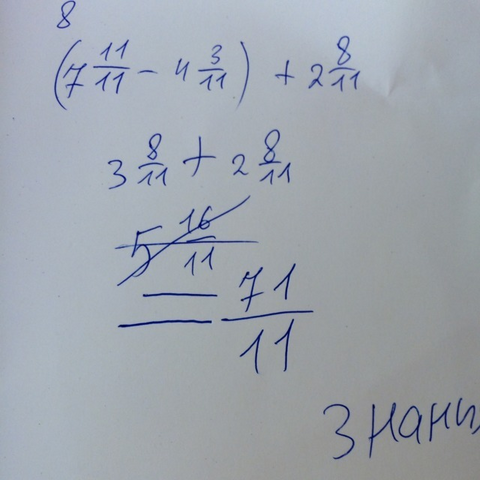 8
(7 11/11 - 4 3/11) + 2 8/11
3 8/11 + 2 8/11
5 16/11
= 71/11
Знани